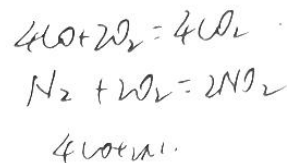 4CO+2O₂=4CO₂
N₂+2O₂=2NO₂
4CO+2N